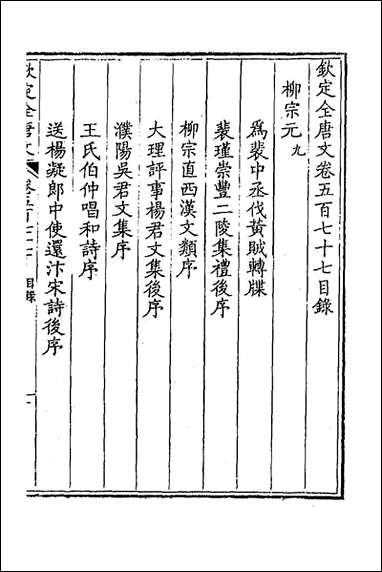 欽定全唐文卷五百七十七目錄
柳宗元九
為裴中丞伐黃賊轉牒
裴瑾崇豐二陵集禮後序
柳宗直西漢文類序
大理評事楊君文集後序
濮陽吳君文集序
王氏伯仲唱和詩序
送楊凝郎中使還汴宋詩後序
欽定全唐文 卷五百七十七 目錄 一